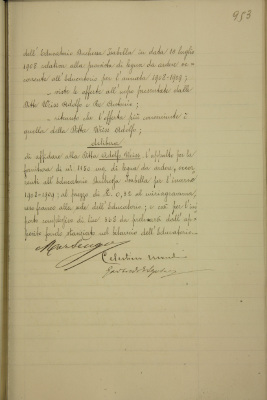 953
dell'Educatorio Duchessa Isabella in data 10 luglio
1908 relativa alla provvista di legna da ardere ne-
cessaria all'Educatorio per l'inverno 1908-1909;
- viste le offerte all'uopo presentate dalle
Ditte Weiss Adolfo e De Antonio;
- ritenuto che l'offerta più conveniente è
quella della Ditta Weiss Adolfo;
delibera
di affidare alla Ditta Adolfo Weiss l'appalto per la
fornitura di mg. di legna da ardere, occor-
rente all'Educatorio Duchessa Isabella per l'inverno
1908-1909, al prezzo di L. al miriagramma,
resa franco alla sede dell'Educatorio; e ciò per l'im-
porto complessivo di lire da prelevarsi dall'ap-
posito fondo stanziato nel bilancio dell'Educatorio.